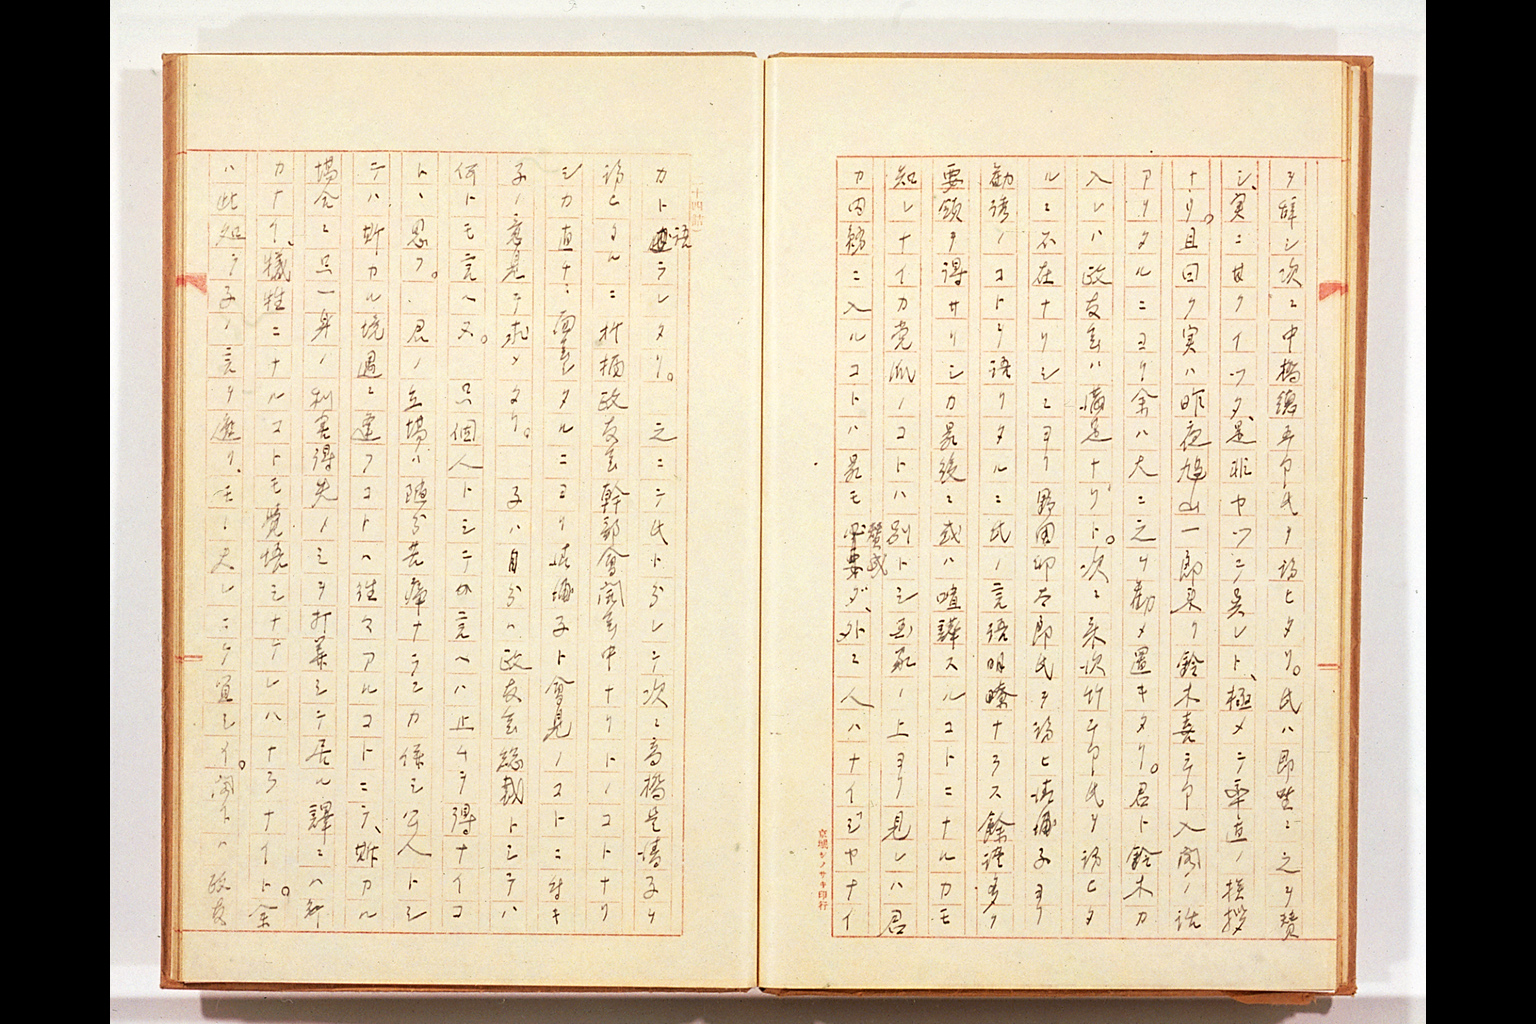 ヲ辞シ次ニ中橋徳五郎氏ヲ訪ヒタリ。氏ハ即坐ニ之ヲ賛
シ、実ニ甘クイツタ、是非ヤツテ呉レト、極メテ率直ノ挨拶
ナリ。且曰ク実ハ昨夜鳩山一郎来リ鈴木喜三郎入閣ノ話
アリタルニヨリ余ハ大ニ之ヲ勧メ置キタリ。君ト鈴木カ
入レハ政友会ハ満足ナリト。次ニ来次竹二郎氏ヲ訪ヒタ
ルニ不在ナリシニヨリ野田卯太郎氏ヲ訪ヒ清浦子ヨリ
勧誘ノコトヲ語リタルニ氏ノ言語明瞭ナラス餘語多ク
要領ヲ得サリシカ最後ニ或ハ喧譁スルコトニナルカモ
知レナイカ党派ノコトハ別トシ国家ノ上ヨリ見レハ君
カ内務ニ入ルコトハ最モ賛成ダ、外ニ人ハナイジヤナイ
京堀ケノサキ印行
カト語ラレタリ。 之ニテ氏ト分レテ次ニ高橋是清子ヲ
訪ヒタルニ折柄政友会幹部會開会中ナリトノコトナリ
シカ直チニ面会シタルニヨリ清浦子ト會見ノコトニ付キ
子ノ意見ヲ求メタリ。 子ハ自分ハ政友会総裁トシテハ
何トモ言ヘヌ。 只個人トシテカ言ヘハ止ムヲ得ナイコ
トヽ思フ。 君ノ立場ハ随分苦痛ナランカ併シ公人トシ
テハ斯カル境遇ニ遭フコトハ往々アルコトニテ、斯カル
場合ニ只一身ノ利害得失ノミヲ打算シテ居ル譯ニハ行
カナイ、犠牲ニナルコトモ覚悟シナケレハナラナイト。余
ハ此知ラ子ノ言ヲ遮リ、モー夫レニテ宜シイ。閣下ハ政友